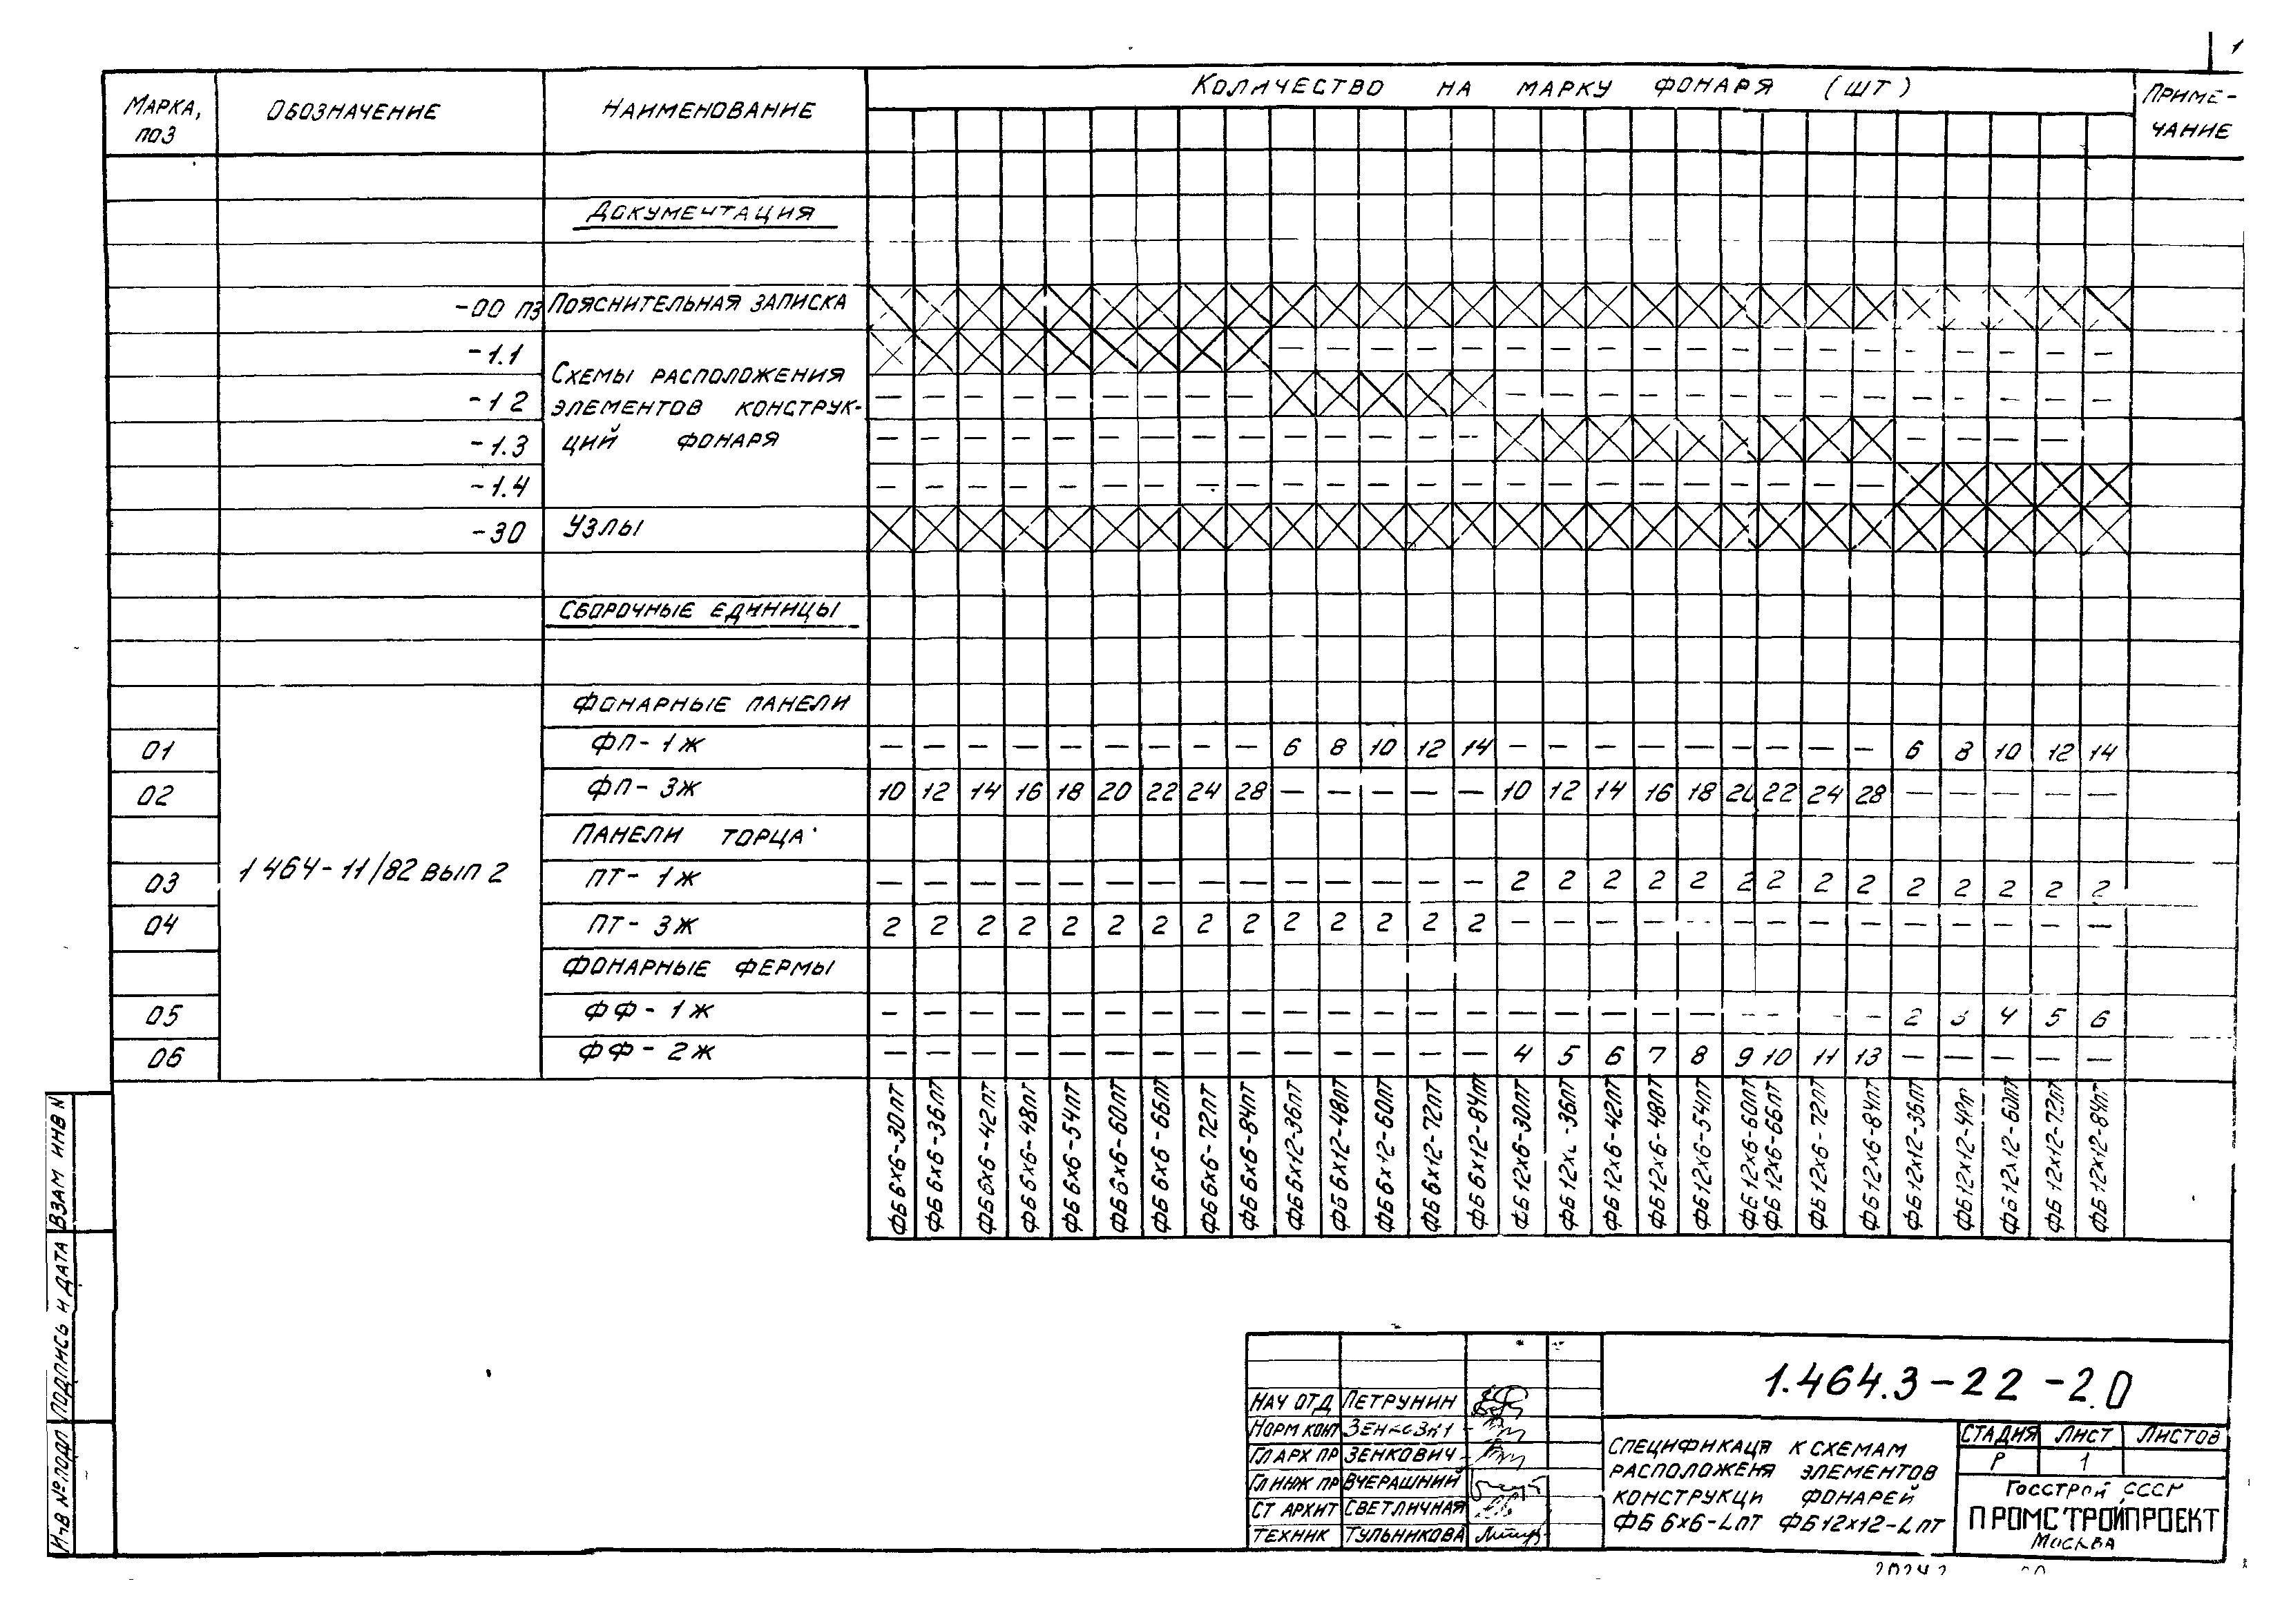 МАРКА, ПОЗ
ОБОЗНАЧЕНИЕ
НАИМЕНОВАНИЕ
КОЛИЧЕСТВО НА МАРКУ ФОНАРЯ (ШТ)
ПРИМЕ-
ЧАНИЕ
ДОКУМЕНТАЦИЯ
-00 ПЗ ПОЯСНИТЕЛЬНАЯ ЗАПИСКА
-1.1 — — — — — — — — — — — — — — — — — — —
СХЕМЫ РАСПОЛОЖЕНИЯ
-1 2 ЭЛЕМЕНТОВ КОНСТРУК- — — — — — — — — — — — — — — — — — — — — — — —
-1.3 ЦИЙ ФОНАРЯ — — — — — — — — — — — — — — — — — —
-1.4 — — — — — — — — — — — — — — — — — — — — — — —
-30 УЗЛЫ
СБОРОЧНЫЕ ЕДИНИЦЫ
ФОНАРНЫЕ ПАНЕЛИ
01 ФП-1Ж — — — — — — — — — 6 8 10 12 14 — — — — — — — — — 6 8 10 12 14
02 ФП-3Ж 10 12 14 16 18 20 22 24 28 — — — — — 10 12 14 16 18 20 22 24 28 — — — — —
ПАНЕЛИ ТОРЦА
1 464-11/82 ВЫП 2
03 ПТ-1Ж — — — — — — — — — — — — — — 2 2 2 2 2 2 2 2 2 2 2 2 2 2
04 ПТ-3Ж 2 2 2 2 2 2 2 2 2 2 2 2 2 2 — — — — — — — — — — — — — —
ФОНАРНЫЕ ФЕРМЫ
05 ФФ-1Ж — — — — — — — — — — — — — — — — — — — — — — — 2 3 4 5 6
06 ФФ-2Ж — — — — — — — — — — — — — — 4 5 6 7 8 9 10 11 13 — — — — —
ФБ 6х6-30ПТ
ФБ 6х6-36ПТ
ФБ 6х6-42ПТ
ФБ 6х6-48ПТ
ФБ 6х6-54ПТ
ФБ 6х6-60ПТ
ФБ 6х6-66ПТ
ФБ 6х6-72ПТ
ФБ 6х6-84ПТ
ФБ 6х12-36ПТ
ФБ 6х12-48ПТ
ФБ 6х12-60ПТ
ФБ 6х12-72ПТ
ФБ 6х12-84ПТ
ФБ 12х6-30ПТ
ФБ -36ПТ
ФБ 12х6-42ПТ
ФБ 12х6-48ПТ
ФБ 12х6-54ПТ
ФБ 12х6-60ПТ
ФБ 12х6-66ПТ
ФБ 12х6-72ПТ
ФБ 12х6-84ПТ
ФБ 12х12-36ПТ
ФБ 12х12-48ПТ
ФБ 12х12-60ПТ
ФБ 12х12-72ПТ
ФБ 12х12-84ПТ
ВЗАМ ИНВ N
ПОДПИСЬ И ДАТА
ИНВ № ПОДЛ
1.464.3-22-2.0
НАЧ ОТД ПЕТРУНИН
НОРМ КОНТ
ГЛ АРХ ПР ЗЕНКОВИЧ
ГЛ ИНЖ ПР ВЧЕРАШНИЙ
СТ АРХИТ СВЕТЛИЧНАЯ
ТЕХНИК ТУЛЬНИКОВА
СПЕЦИФИКАЦЯ К СХЕМАМ
РАСПОЛОЖЕНЯ ЭЛЕМЕНТОВ
КОНСТРУКЦИ ФОНАРЕЙ
ФБ 6х6-LПТ ФБ 12х12-LПТ
СТАДИЯ ЛИСТ ЛИСТОВ
Р 1
ГОССТРОЙ СССР
ПРОМСТРОЙПРОЕКТ
МОСКВА